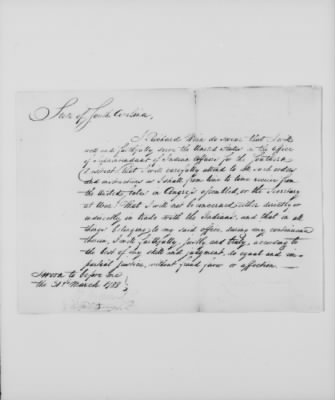 State of South Carolina,
I Richard Winn do swear that I will
well and faithfully serve the United States in the office
of Superintendant of Indian Affairs for the Southern
District that I will carefully attend to all such orders
and instructions as I shall from time to time receive from
the United States in Congress assembled, or the Secretary
at War. That I will not be concerned either directly or
indirectly in Trade with the Indians, and that in all
things belonging to my said office, during my continuance
therein, I will faithfully, justly and truly, according to
the best of my skill and judgment, do equal and im-
partial justice, without fraud favor or affection.
Sworn to before me
the 31st March 1788